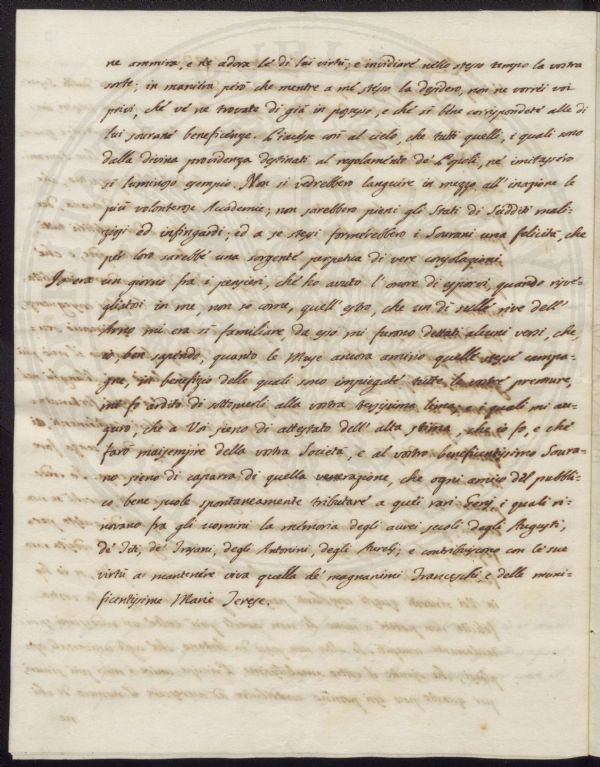 ne ammira, e ne adora le di lui virtù; e invidiare nello stesso tempo la vostra
sorte; in maniera però che mentre a me stesso la desidero, non ne vorrei voi
privi, che ve ne trovate di già in possesso, e che sì bene corrispondete alle di
lui sourane beneficenze. Piacesse così al cielo, che tutti quelli, i quali sono
dalla divina providenza destinati al regolamento de' Popoli, ne imitassero
sì luminoso esempio. Non si vedrebbero languire in mezzo all' inazione le
più volonterose Accademie; non sarebbero pieni gli Stati di Sudditi mali-
ziosi ed infingardi; ed a se stessi formerebbero i Sourani una felicità, che
per loro sarebbe una sorgente perpetua di vere consolazioni.
In ora un giorno fra i pensieri, che ho avuto l' onore di esporvi, quando risve-
gliatosi in me, non so come, quell' estro, che un dì nelle rive dell'
Arno mi era sì familiare, da esso mi furono dettati alcuni versi, che,
io ben sapendo, quanto le Muse ancora amino quelle stesse campa-
gne, in benefizio delle quali sono impiegate tutte le vostre premure,
mi fo ardito di sottometterli alla vostra tersissima lima, e i quali mi au-
guro, che a Voi sieno di attestato dell' alta stima, che io fo, e che
farò maisempre della vostra Società, e al vostro beneficentissimo Soura-
no sieno di caparra di quella venerazione, che ogni amico del pubbli-
co bene suole spontaneamente tributare a quei rari Genj, i quali ri-
nuovano fra gli uomini la memoria degli aurei secoli degli Augusti,
de' Titi, de' Trajani, degli Antonini, degli Aurelj; e contribuiscono con le sue
virtù a mantenere viva quella de' magnanimi Franceschi, e delle muni-
ficentissime Marie Terese.